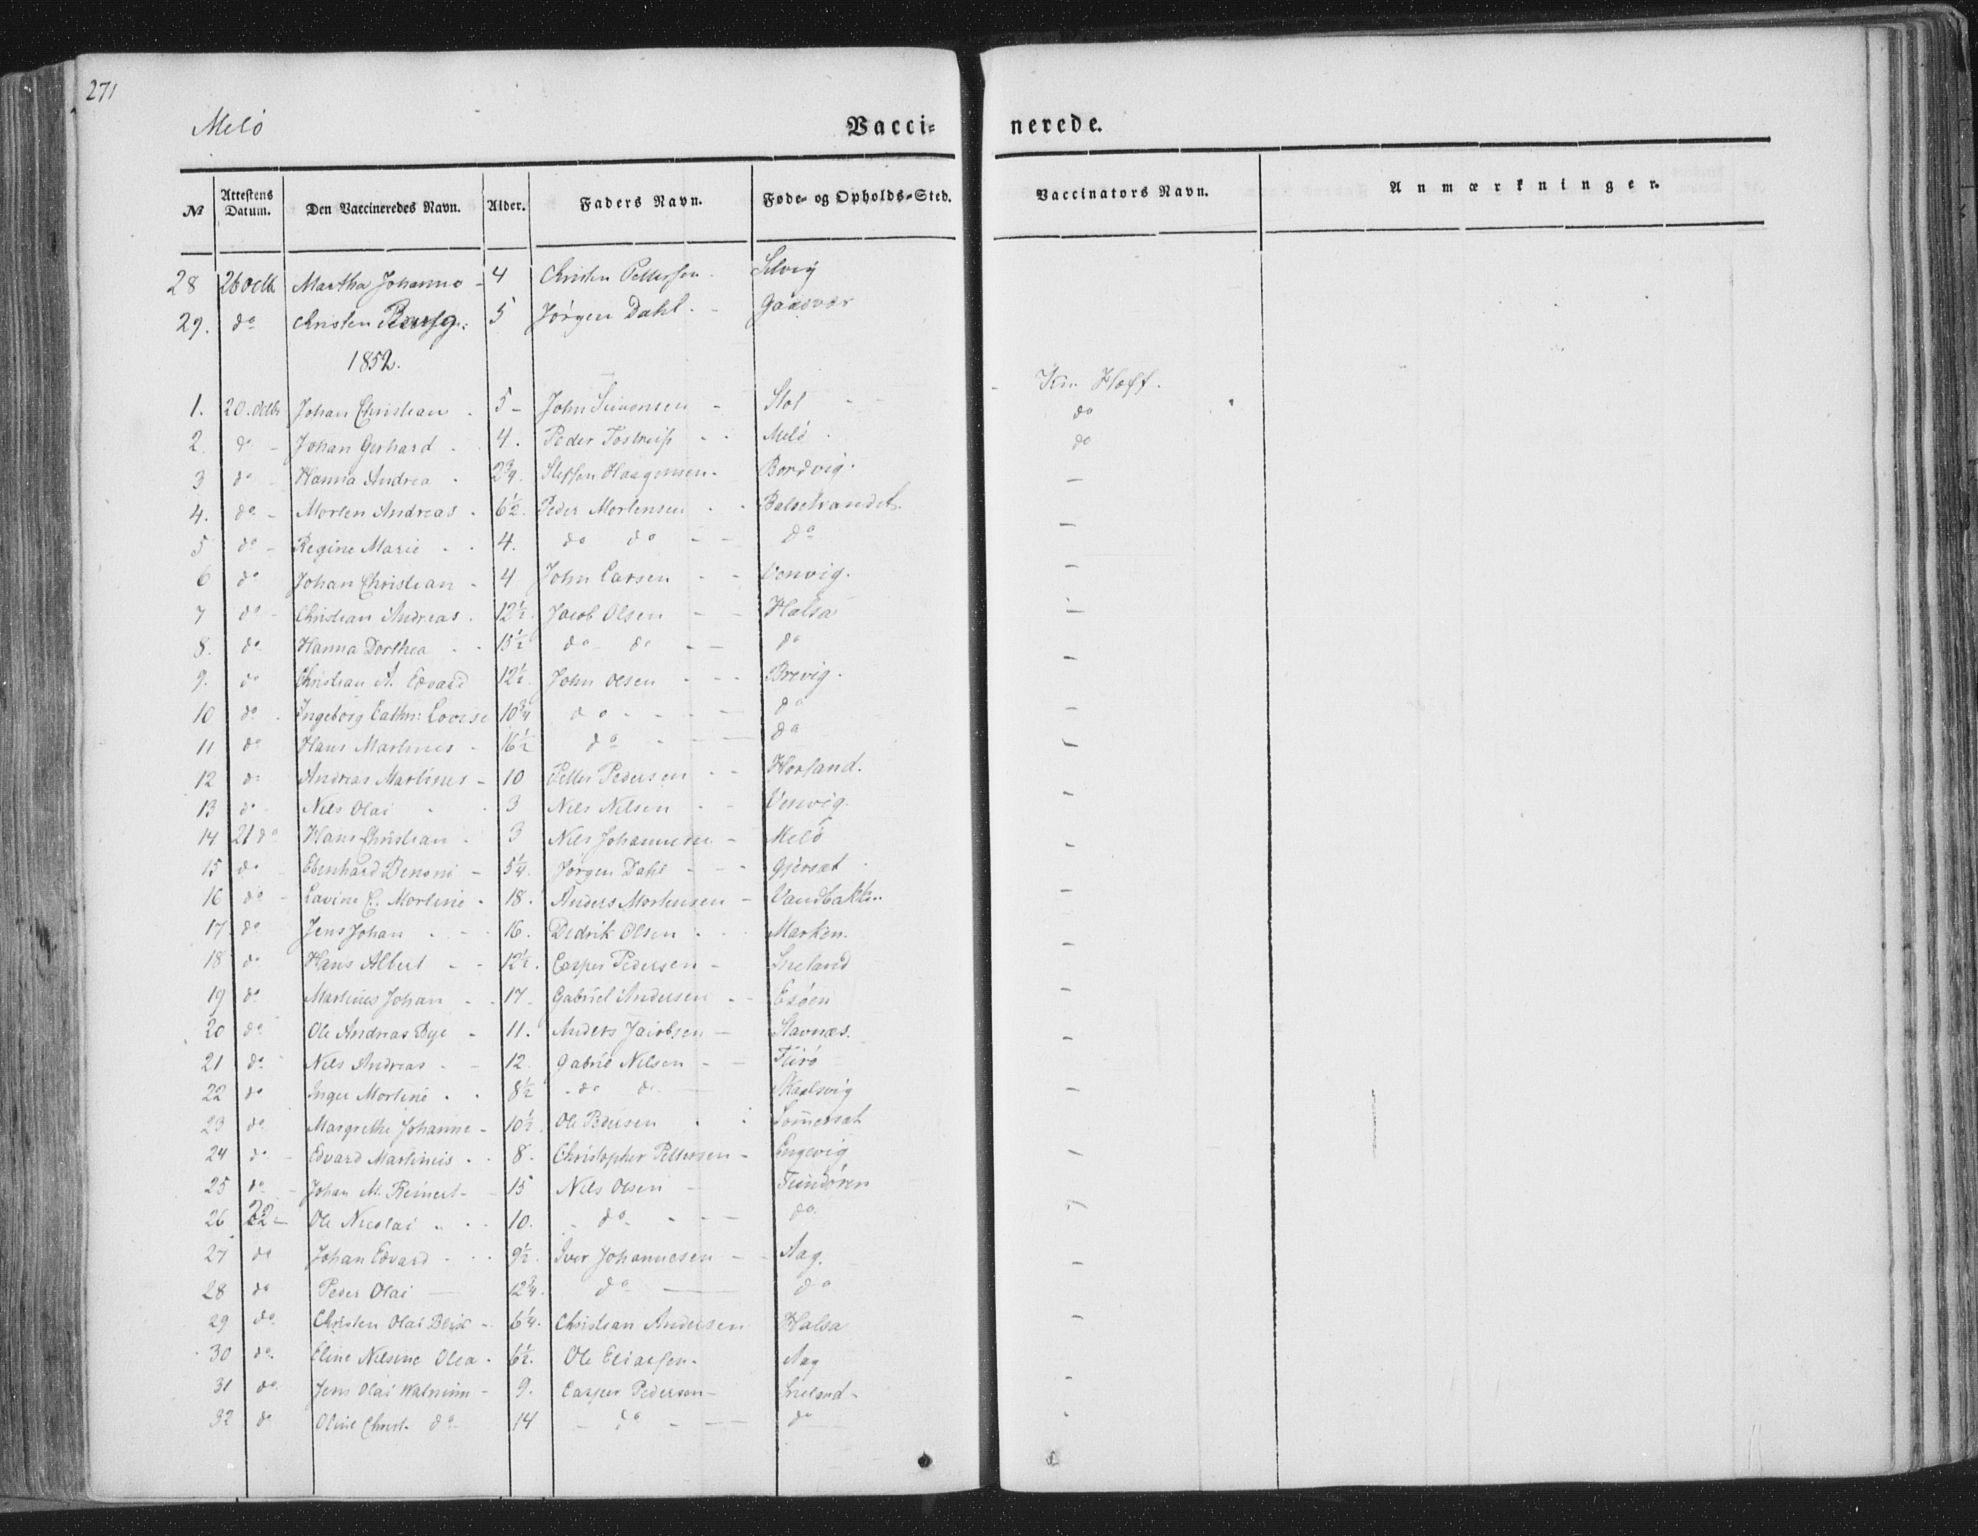 271
Melö
Vacci- nerede.
№ Attestens Datum. Den Vaccineredes Navn. Alder. Faders Navn. Føde- og Opholds-Sted. Vaccinators Navn. Anmærkninger.
28 26 octb Martha Johanna - 4 Christen Pettersen - Selvig
29. do Christen 5 Jørgen Dahl. - Gaasvær
1852.
Hoff.
1. 20. octbr Johan Christian - 5 - John Simonsen - Stot - - do
2. do - Johan Gerhard - 4. Peder - - Melö - do
3 do - Hanna Andrea - Steffen Haagensen - Bordvig. -
4. do - Morten Andreas - 6½. Peder Mortensen - - -
5 do - Regine Marie - - 4. do do - - do
6 do Johan Christian - 4 John Larsen - - -
7 do - Christian Andreas. 12½. Jacob Olsen - - Halsa -
8. do Hanna Dorthea - - 15½ do - do - - do
9. do Christian A. Edvard 12½. John Olsen - - - Brevig. -
10 do - Ingeborg Cathr: Lovise 10¾ do - - - - do -
11 do Hans Martinus - 16½ do - - - do -
12 do Andreas Martinus - 10 Petter Pedersen - - Horsand.
13 do - Nils Olai - - 3 Nils Nilsen - - -
14 21 do Hans Christian - 3 Nils Johannesen - Melö
15 do Ebenhard Benoni - 5¼. Jørgen Dahl - - - Gjersæt - -
16 do - Lavine C. Mortine - 18. Anders Mortensen - Vandbakken -
17 do Jens Johan - - - 16. Didrik Olsen - - - Marken.
18 do Hans Albert - - 12½. Casper Pedersen - -
19 do Martinus Johan - - 17. Gabriel Andersen - - Esöen -
20 do Ole Andreas - 11. Anders Jacobsen - Stavnæs.
21 do - Nils Andreas - - 12 Gabriel Nilsen - - -
22 do Inger Mortine - - 8½ - do do - -
23 do Margrethe Johanne - 10½. Ole Pedersen - - Sommersæt
24 do - Edvard Martinus - - 8. Christopher Pettersen - Engevig -
25 do - Johan M. Reinert - 15 Nils Olsen -
26 22 - Ole Nicolai - - - 10. - do - - - - do -
27 do Johan Edvard - - - 9½. Iver Johannesen - - Aag.
28 do Peder Olai - 12¾. do - do -
29 do Christen Olai Blix - 6¼. Christian Andersen Halsa -
30 do. Eline Nilsine Olea - 6½. Ole Eliassen - Aag
31 do Jens Olai - 9. Casper Pedersen - -
32 do Oline Christ. do - 14 - do - - - do -